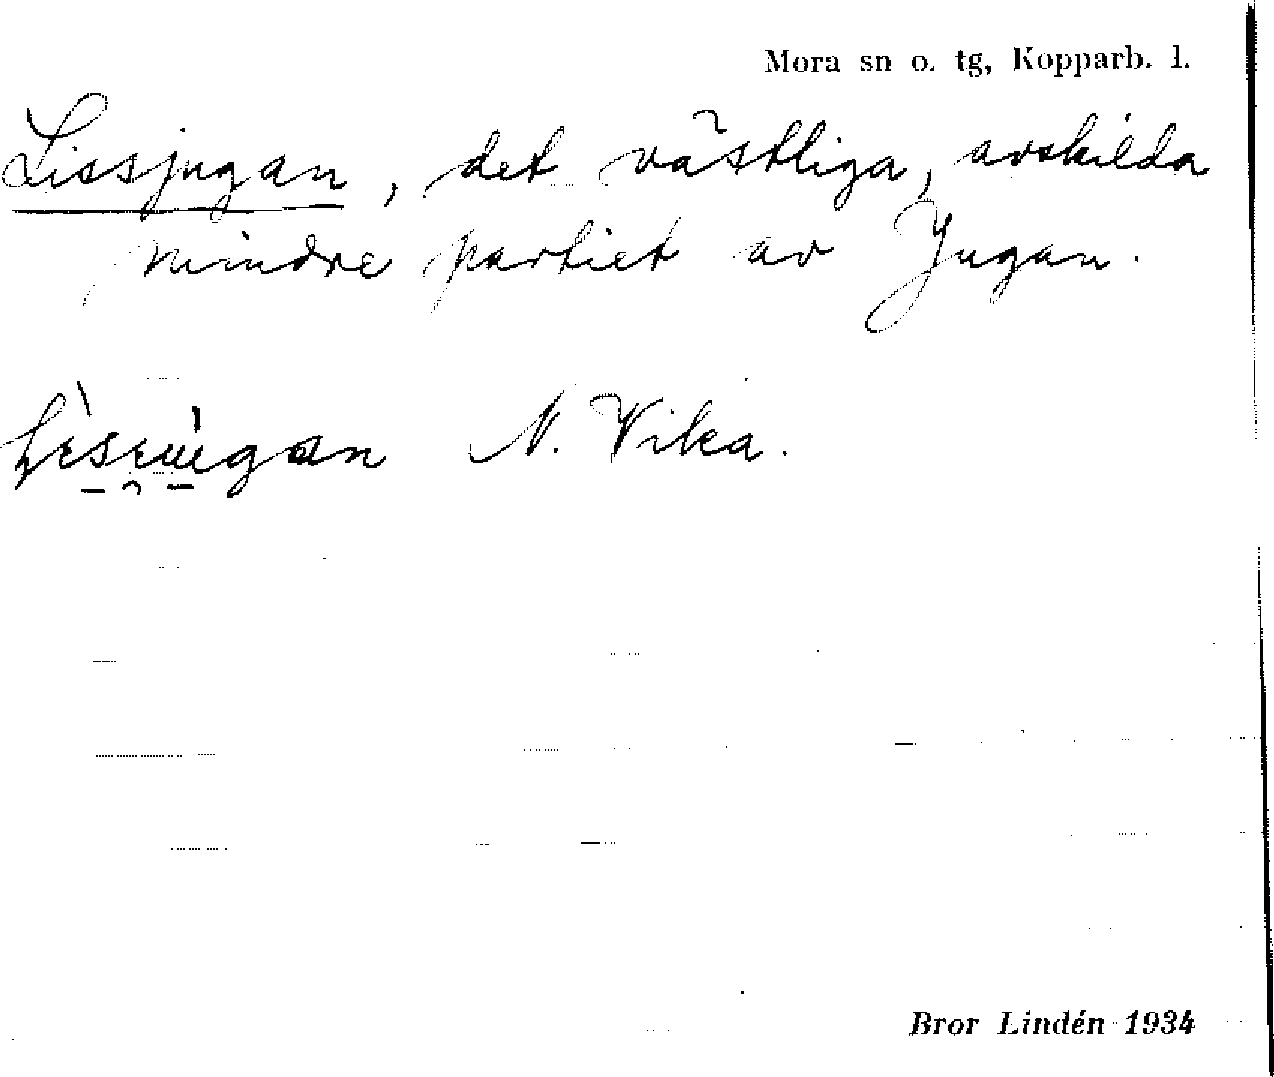 Mora sn o. tg, Kopparb. l.
Lissjugan, det västliga, avskilda
mindre partiet av Jugan.
N. Vika.
Bror Lindén 1934